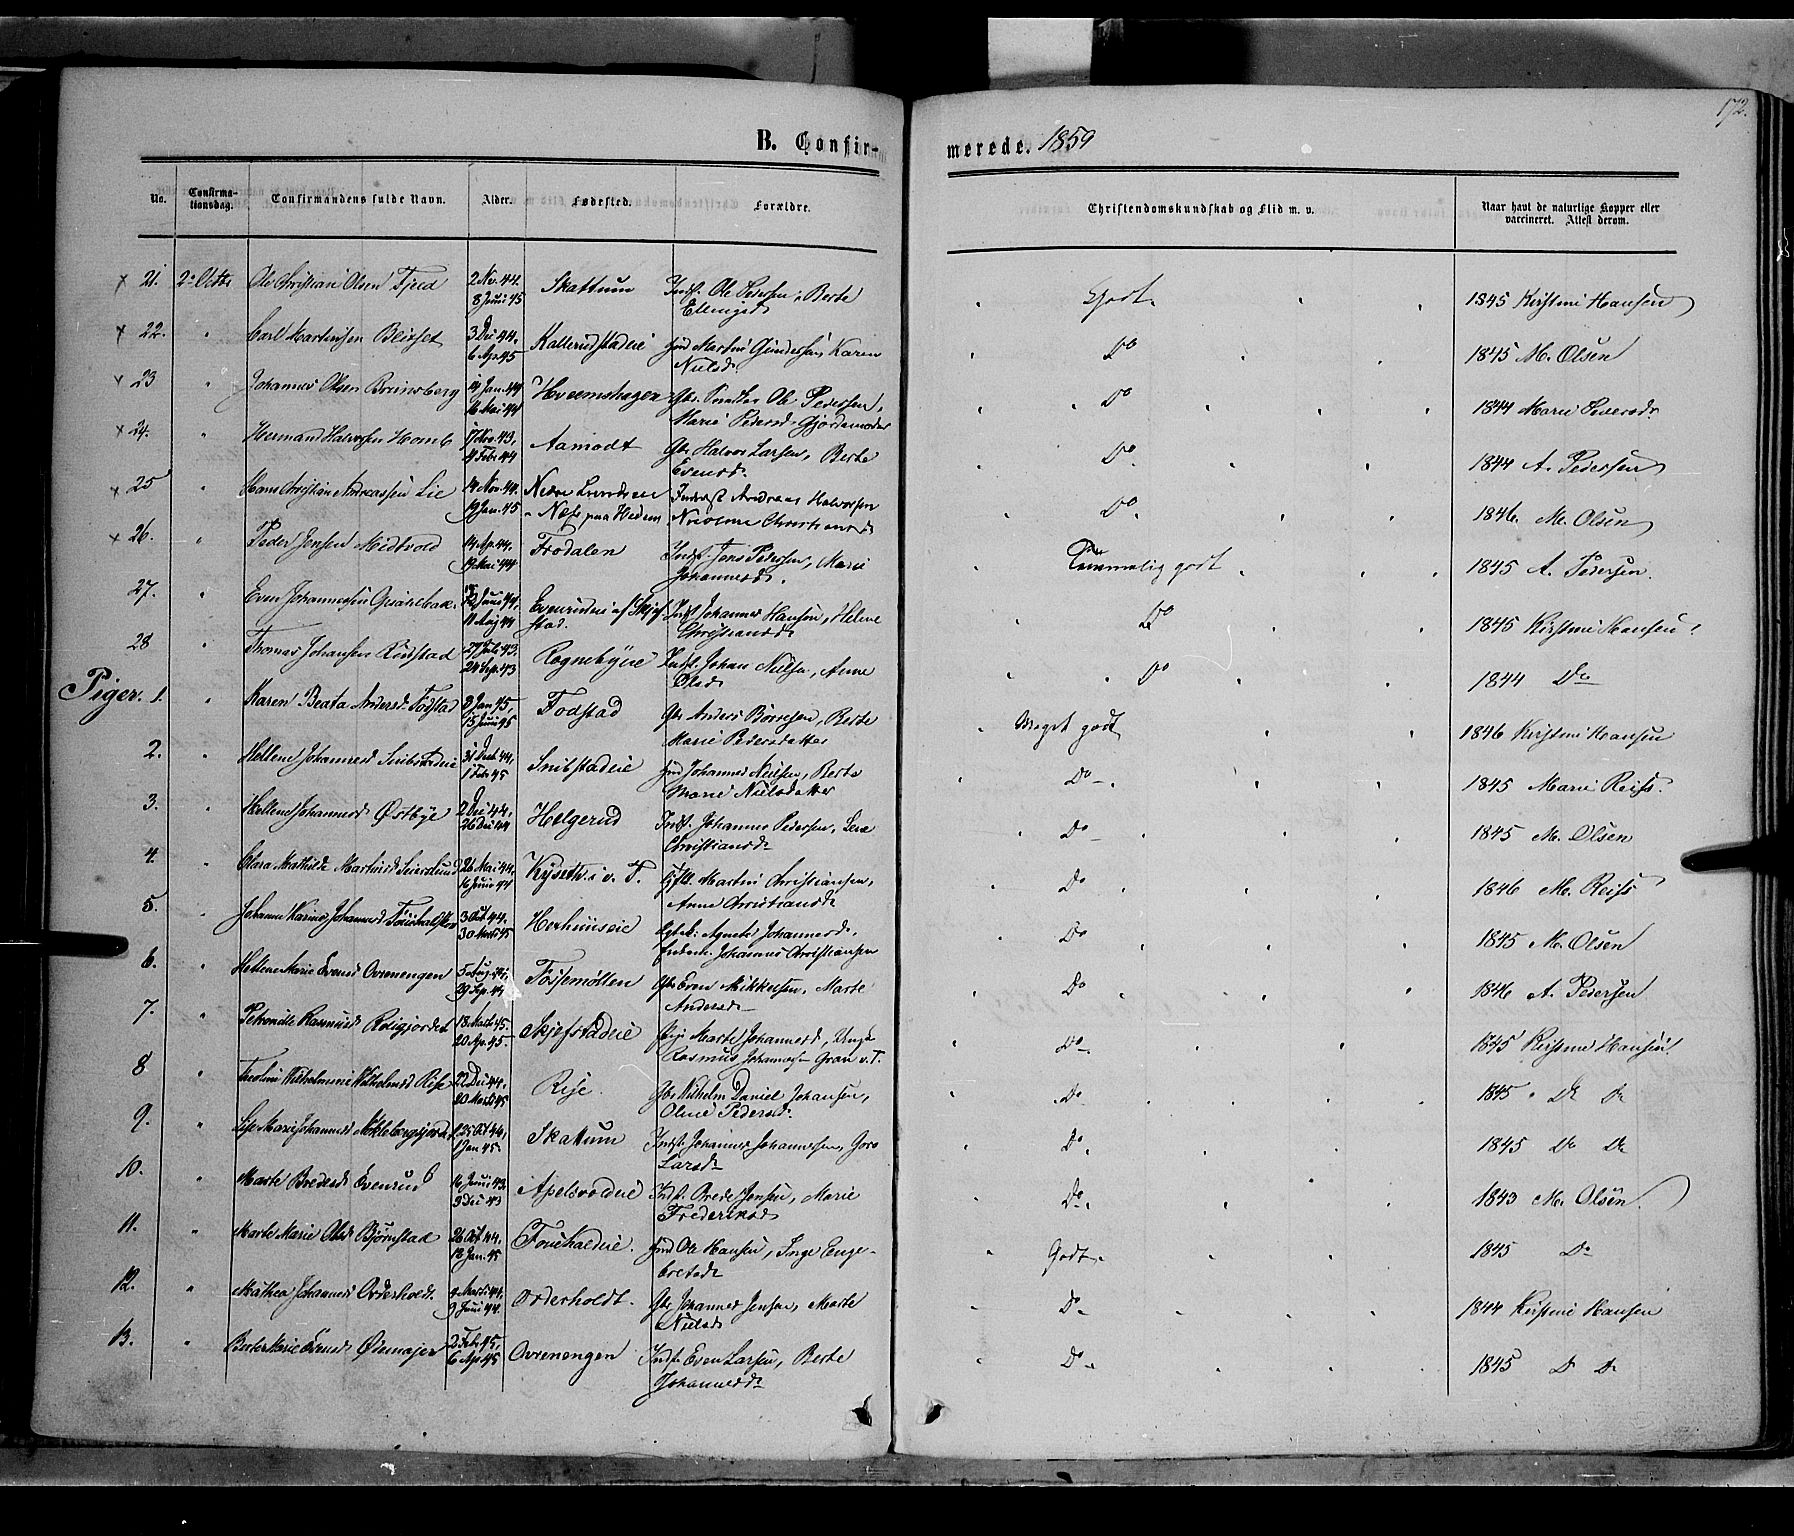 172.
B. Confir-
merede. 1859
No. Confirma-tionsdag. Confirmandens fulde Navn. Alder. Fødested. Forældre. Christendomskundskab og Flid m. v. Naar havt de naturlige Kopper eller vaccineret. Attest derom.
21. 2. Octbr Ole Christian Olsen Fjeld 2 Nov. 44. 8 Juni 45 Skattum Indst. Ole Pedersen, Berte Ellingsd. Godt. 1845 Kirstine Hansen
22. " Carl Martinsen Blixset 3 Dec 44. 6 Ap. 45 Kallerudstadeie Ind Martin Gundersen, Karen Nielsd. Do 1845 M. Olsen
23 " Johannes Olsen Bruusberg Jan. 44 16 Mai 44 Hveemshagen Gbr. Ole Pedersen, Marie Pedersd. Gjordemoder Do 1844 Marie Pedersdr
24. " Herman Halvorsen Homb 17 Nov. 43, 4 Febr 44 Aamodt Gbr Halvor Larsen, Berte Evensd. Do 1844 A. Pedersen
25 " Hans Christian Andreassen Lie 14 Nov. 44. 19 Jan. 45 Nedre Næs paa Hedem Inderst Andreas Halvorsen Nicoline Christiansd. Do 1846. M. Olsen
26. " Peder Jensen Midtvold 14 Ap. 44. 19 Mai 44 Frodalen Indst. Jens Pedersen, Marie Johannesd. Temmelig godt 1845 A. Pedersen.
27. " Even Johannessen Juni 44. 11 Aug 44 Evenrudeie af Skjefstad. Indst Johannes Hansen, Helene Christiansd. Do 1845 Kirstine Hansen
28 " Thomas Johansen Rudstad 27 Juli 43. 24 Sep. 43 Rognebyeie Indst. Johan Nielsen, Anne Olsd. Do 1844 Do
Piger. 1. " Karen Beata Andersd Fodstad Jan 45, 15 Juni 45 Fodstad Gbr Anders Børresen, Berte Marie Pedersdatter Meget godt 1846 Kirstine Hansen
2. " Hellene Johannesd Snibstadeie 31 Dec 44, 1 Febr. 45 Snibstadeie Ind Johannes Nielsen, Berte Marie Nielsdatter Do 1845 Marie Reiss.
3. " Hellene Johannesd Østbye 2 Dec 44, 26 Dec 44 Helgerud Indst. Johannes Pedersen, Lera Christiansd. Do 1845 M. Olsen
4. " Clara Mathilde Martinsd Seierslund 26 Mai 44, 16 Juni 44 Kyseth i v. T. Martin Christiansen, Anne Christiansd. Do 1846 M. Reiss
5. " Johanne Karine Johannesd 3 Oct 44. 30 Marts 45 Hexhuuseie Agnete Johannesd, Johannes Christiansen Do 1845 M. Olsen
6. " Hellene Marie Evensd Ovrenengen 5 Aug. 44, 29 Sep. 44 Fossemøllen Gbr Even Mikkelsen, Marte Andersd. Do 1846 A. Pedersen
7. " Petronille Rasmusd Roligjordet 18 Marts 45. 20 Ap. 45. Skjefstadeie Pige Marte Johannesd, Ungk Rasmus Johannesn Gran v. T. Do 1845 Kirstine Hansen
8 " Theoline Wilhelmine Wilhelmsd Rise 22 Dec 44, 20 Marts 45 Rise. Gbr Wilhelm Daniel Johansen, Oline Pedersd. Do 1845 " Do Do
9. " Lise Marie Johannesd Nøklebergsjordet 25 Oct 44, 1 Jan 45. Skattum Indst. Johannes Johannessen, Goro Larsd. Do 1845 Do Do
10. " Marte Bredesd Evenrud 16 Juni 43, 3 Dec 43 Apelsvoldeie Indst. Brede Jensen, Marie Frederiksd. Do 1843 M. Olsen.
11. " Marte Marie Olsd Bjørnstad 26 Oct 44, 18 Jan. 45 Ind Ole Hansen, Inge Engebretsd. Godt. 1845 Do
12. " Mathea Johannesd Orderhold. Marts 44, 9 Juni 44. Orderholdt. Gbr Johannes Jensen, Marte Nielsd. Do 1844 Kirstine Hansen
13. " Berte Marie Evensd Ødemajer 2 Febr 45, 6 Ap. 45 Ovrenengen Indst. Even Larsen, Berte Johannesd. Do 1845 Do Do